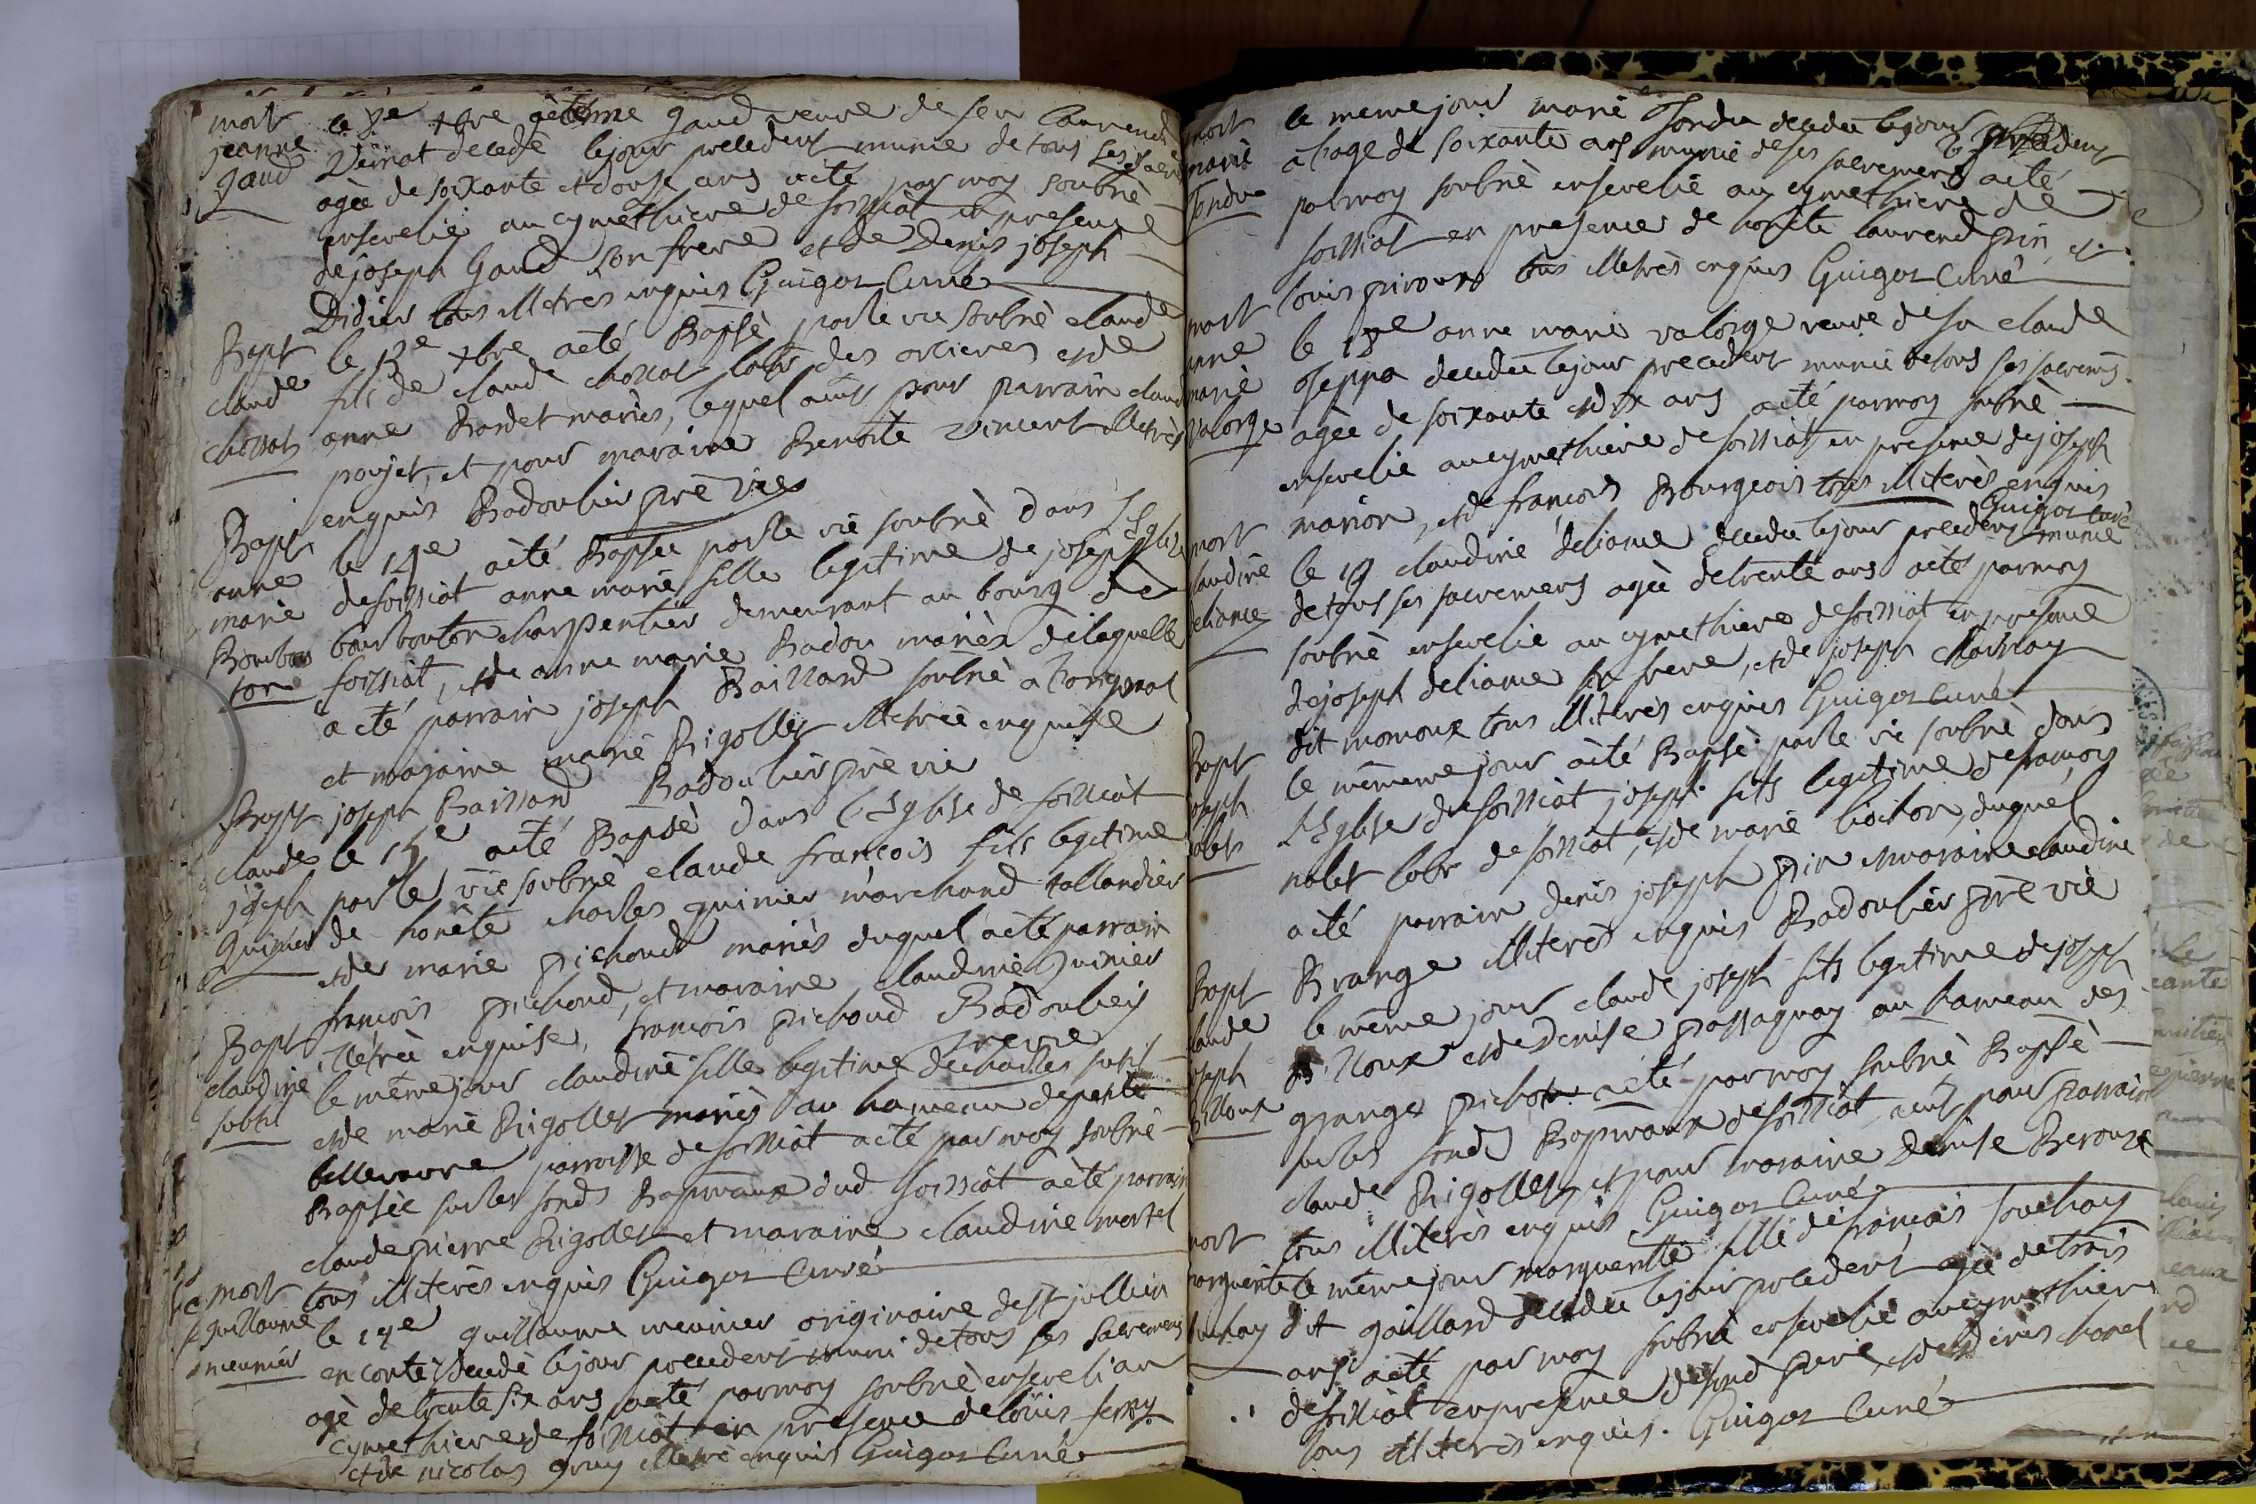 mort
jeanne
gaud
le 9e xbre jeanne gaud veuve de feu laurend
Deinat decedé le jour precedent munie de tous ses sacre
agée de soixante et douze ans a eté par moy soubné
ensevelie au cymethiere de foissiat en presence
de joseph gaud son frere et de Denis joseph
Didier tous illetrés enquis Guigoz Curé
Bapt
claude
chossat
le 13e xbre a eté Bapsé par le vie soubné claude
fils de claude chossat labr des orcieres et de
anne Bardet mariés, lequel a eüt pour parrain claud
poujet, et pour maraine Benoite vincent illetrés
enquis Badoulier prê vie
Bapt
anne
marie
Bourbon
ton
le 14e a eté Bapsée par le vie soubné dans l'Eglise
de foissiat anne marie fille legitime de joseph
bourbouton charpentier demeurant au bourg de
foissiat, et de anne marie Badou mariés de laquelle
a eté parrain joseph Baillard soubné a l'original
et maraine marie Rigollet illetrée enquise
joseph Baissard Badoulier prê vie
Bapt
claude
joseph
Guinier
le 15e a eté Bapsé dans l'Eglise de foissiat
par le vie soubné claude françois fils legitime
de honête charles guinier marchand tallandier
et de marie pichoud mariés duquel a eté parrain
françois pichoud, et maraine claudine guinier
illetrée enquise, françois pichoud Badoulier
prê vie
Bapt
claudine
subtil
le même jour claudine fille legitime de charles subtil
et de marie Rigollet mariés au hameau de petite
bellevavre parroisse de foissiat a eté par moy soubné
Bapsée sur les fonds Baptimaux dud foissiat a eté parrain
claude pierre Rigollet et maraine claudine martel
tous illiterés enquis Guigoz Curé
mort
guillaume
meunier
le 17e guillaume meunier originaire de st jullien
en conte decedé le jour precedent muni de tous ses sacremens
agé de trente six ans a eté par moy soubné enseveli au
cymethiere de foissiat en presence de loüis ferry
et de nicolas gruy illetré enquis Guigoz Curé
mort
marie
fondre
le meme jour marie fondu decedée le jour precedent
a l'age de soixante ans munie de ses sacremens a eté
par moy soubné ensevelie au cymethiere de
foissiat en presence de honête laurend pin, et
louis piroux tous illetrés enquis Guigoz Curé
mort
anne
marie
valorge
le 18e anne marie valorge veuve de fu claude
oseppa decedée le jour precedent munie de tous ses sacremens
agée de soixante et dix ans a eté par moy soubné
ensevelie au cymethiere de foissiat en presence de joseph
marion, et de françois Bourgeois tous illiterés enquis
Guigoz curé
mort
claudine
deliance
le 19 claudine deliance decedée le jour precedent munie
de tous ses sacremens agée de trente ans a eté par moy
soubné ensevelie au cymethiere de foissiat en presence
de joseph deliance son frere, et de joseph chasnay
dit momoux tous illiterés enquis Guigoz Curé
Bapt
joseph
nolet
le mêmeme jour a eté Bapsé par le vie soubné dans
l'Eglise de foissiat joseph fils legitime de françois
nolet labr de foissiat, et de marie liochon, duquel
a eté parrain denis joseph pin et maraine claudine
Brange illiterés enquis Badoulier prê vie
Bapt
claude
joseph
Billoux
le même jour claude joseph fils legitime de joseph
Billoux et de Denise passaquay au hameau des
granges pichot a eté par moy soubné Bapsé
sur les fonds Baptimaux de foissiat a eut pour parrain
claude Rigollet, et pour maraine Denise Berouze
tous illiterés enquis Guigoz Curé
mort
marguerite
souchay
le même jour marguerite fille de françois souchay
dit gaillard decedée le jour precedent agée de trois
ans a eté par moy soubné ensevelie au cymethiere
de foissiat en presence de sond pere, et de denis morel
tous illiterés enquis. Guigoz Curé